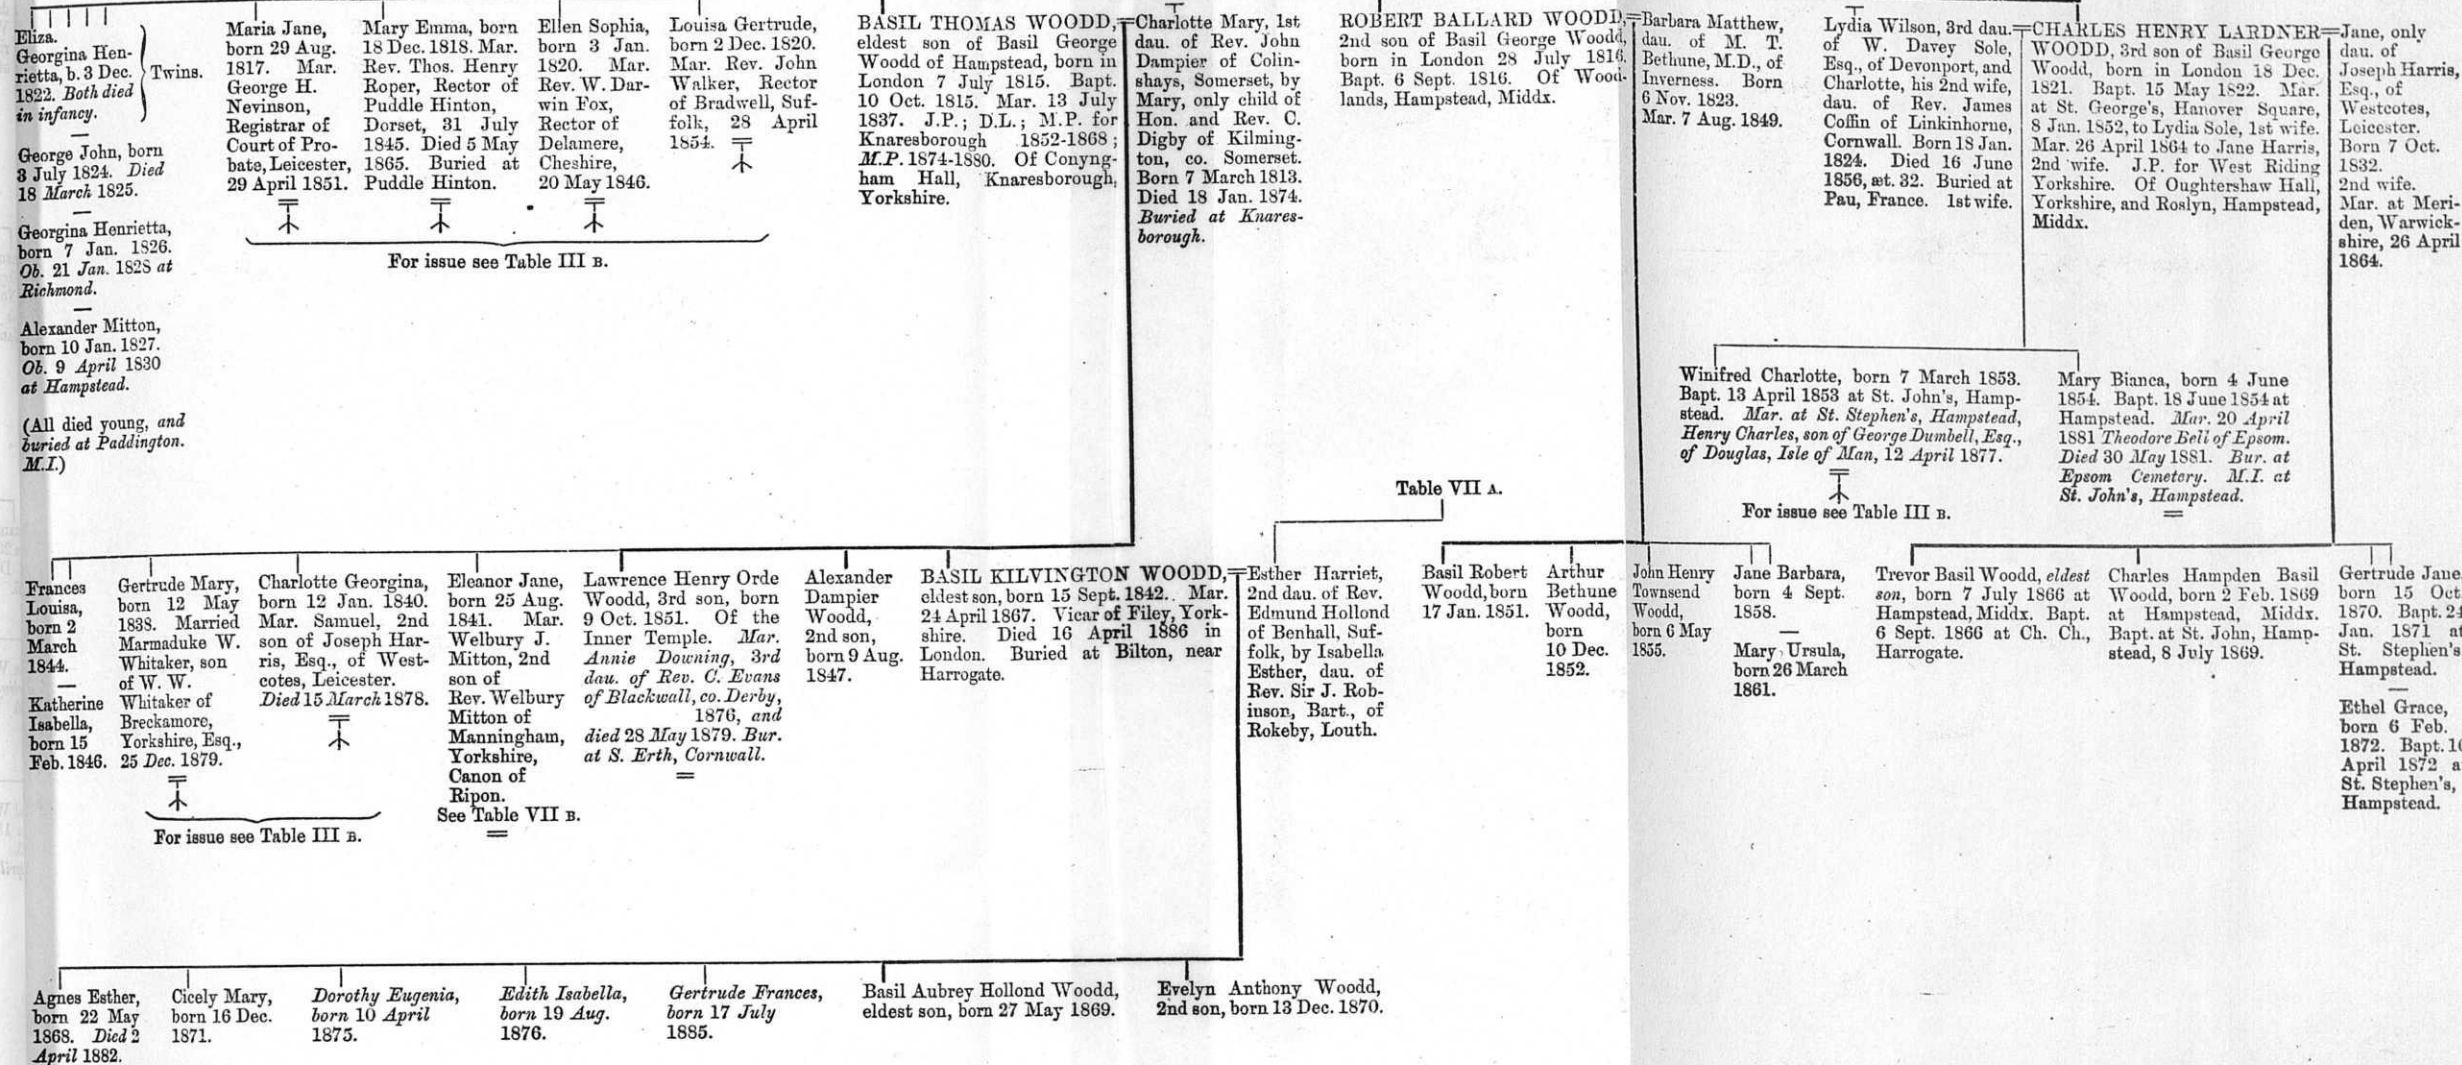 Eliza.
Georgina Hen-
rietta, b. 3 Dec.
1822. Both died
in infancy.
Twins.
George John, born
3 July 1824. Died
18 March 1825.
Georgina Henrietta,
born 7 Jan. 1826.
Ob. 21 Jan. 1828 at
Richmond.
Alexander Mitton,
born 10 Jan. 1827.
Ob. 9 April 1830
at Hampstead.
(All died young, and
buried at Paddington.
M.I.)
Maria Jane,
born 29 Aug.
1817. Mar.
George H.
Nevinson,
Registrar of
Court of Pro-
bate, Leicester,
29 April 1851.
Mary Emma, born
18 Dec. 1818. Mar.
Rev. Thos. Henry
Roper, Rector of
Puddle Hinton,
Dorset, 31 July
1845. Died 5 May
1865. Buried at
Puddle Hinton.
Ellen Sophia,
born 3 Jan.
1820. Mar.
Rev. W. Dar-
win Fox,
Rector of
Delamere,
Cheshire,
20 May 1846.
Louisa Gertrude,
born 2 Dec. 1820.
Mar. Rev. John
Walker, Rector
of Bradwell, Suf-
folk, 28 April
1854.
For issue see Table III B.
BASIL THOMAS WOODD,
eldest son of Basil George
Woodd of Hampstead, born in
London 7 July 1815. Bapt.
10 Oct. 1815. Mar. 13 July
1837. J.P.; D.L.; M.P. for
Knaresborough 1852-1868;
M.P. 1874-1880. Of Conyng-
ham Hall, Knaresborough,
Yorkshire.
=Charlotte Mary, 1st
dau. of Rev. John
Dampier of Colin-
shays, Somerset, by
Mary, only child of
Hon. and Rev. C.
Digby of Kilming-
ton, co. Somerset.
Born 7 March 1813.
Died 18 Jan. 1874.
Buried at Knares-
borough.
ROBERT BALLARD WOODD,
2nd son of Basil George Woodd,
born in London 28 July 1816.
Bapt. 6 Sept. 1816. Of Wood-
lands, Hampstead, Middx.
=Barbara Matthew,
dau. of M. T.
Bethune, M.D., of
Inverness. Born
6 Nov. 1823.
Mar. 7 Aug. 1849.
Lydia Wilson, 3rd dau.
of W. Davey Sole,
Esq., of Devonport, and
Charlotte, his 2nd wife,
dau. of Rev. James
Coffin of Linkinhorne,
Cornwall. Born 18 Jan.
1824. Died 16 June
1856, æt. 32. Buried at
Pau, France. 1st wife.
=CHARLES HENRY LARDNER
WOODD, 3rd son of Basil George
Woodd, born in London 18 Dec.
1821. Bapt. 15 May 1822. Mar.
at St. George's, Hanover Square,
8 Jan. 1852, to Lydia Sole, 1st wife.
Mar. 26 April 1864 to Jane Harris,
2nd wife. J.P. for West Riding
Yorkshire. Of Oughtershaw Hall,
Yorkshire, and Roslyn, Hampstead,
Middx.
=Jane, only
dau. of
Joseph Harris,
Esq., of
Westcotes,
Leicester.
Born 7 Oct.
1832.
2nd wife.
Mar. at Meri-
den, Warwick-
shire, 26 April
1864.
Winifred Charlotte, born 7 March 1853.
Bapt. 13 April 1853 at St. John's, Hamp-
stead. Mar. at St. Stephen's, Hampstead,
Henry Charles, son of George Dumbell, Esq.,
of Douglas, Isle of Man, 12 April 1877.
For issue see Table III B.
Mary Bianca, born 4 June
1854. Bapt. 18 June 1854 at
Hampstead. Mar. 20 April
1881 Theodore Bell of Epsom.
Died 30 May 1881. Bur. at
Epsom Cemetery. M.I. at
St. John's, Hampstead.
Table VII A.
Frances
Louisa,
born 2
March
1844.
Katherine
Isabella,
born 15
Feb. 1846.
Gertrude Mary,
born 12 May
1838. Married
Marmaduke W.
Whitaker, son
of W. W.
Whitaker of
Breckamore,
Yorkshire, Esq.,
25 Dec. 1879.
Charlotte Georgina,
born 12 Jan. 1840.
Mar. Samuel, 2nd
son of Joseph Har-
ris, Esq., of West-
cotes, Leicester.
Died 15 March 1878.
For issue see Table III B.
Eleanor Jane,
born 25 Aug.
1841. Mar.
Welbury J.
Mitton, 2nd
son of
Rev. Welbury
Mitton of
Manningham,
Yorkshire,
Canon of
Ripon.
See Table VII B.
Lawrence Henry Orde
Woodd, 3rd son, born
9 Oct. 1851. Of the
Inner Temple. Mar.
Annie Downing, 3rd
dau. of Rev. C. Evans
of Blackwall, co. Derby,
1876, and
died 28 May 1879. Bur.
at S. Erth, Cornwall.
Alexander
Dampier
Woodd,
2nd son,
born 9 Aug.
1847.
BASIL KILVINGTON WOODD,
eldest son, born 15 Sept. 1842. Mar.
24 April 1867. Vicar of Filey, York-
shire. Died 16 April 1886 in
London. Buried at Bilton, near
Harrogate.
=Esther Harriet,
2nd dau. of Rev.
Edmund Hollond
of Benhall, Suf-
folk, by Isabella
Esther, dau. of
Rev. Sir J. Rob-
inson, Bart., of
Rokeby, Louth.
Basil Robert
Woodd, born
17 Jan. 1851.
Arthur
Bethune
Woodd,
born
10 Dec.
1852.
John Henry
Townsend
Woodd,
born 6 May
1855.
Jane Barbara,
born 4 Sept.
1858.
Mary Ursula,
born 26 March
1861.
Trevor Basil Woodd, eldest
son, born 7 July 1866 at
Hampstead, Middx. Bapt.
6 Sept. 1866 at Ch. Ch.,
Harrogate.
Charles Hampden Basil
Woodd, born 2 Feb. 1869
at Hampstead, Middx.
Bapt. at St. John, Hamp-
stead, 8 July 1869.
Gertrude Jane
born 15 Oct
1870. Bapt. 24
Jan. 1871 at
St. Stephen's
Hampstead.
Ethel Grace,
born 6 Feb.
1872. Bapt. 10
April 1872 a
St. Stephen's,
Hampstead.
Agnes Esther,
born 22 May
1868. Died 2
April 1882.
Cicely Mary,
born 16 Dec.
1871.
Dorothy Eugenia,
born 10 April
1875.
Edith Isabella,
born 19 Aug.
1876.
Gertrude Frances,
born 17 July
1885.
Basil Aubrey Hollond Woodd,
eldest son, born 27 May 1869.
Evelyn Anthony Woodd,
2nd son, born 13 Dec. 1870.